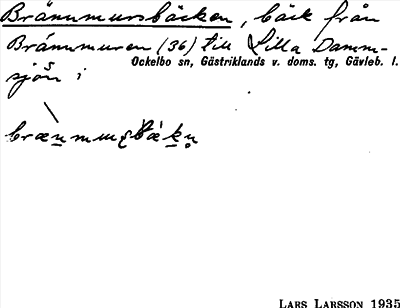 Brännmursbäcken, bäck från
Brännmuren (36) till Lilla Damm-
sjön i
Ockelbo sn, Gästriklands v. doms. tg, Gävleb. l.
LARS LARSSON 1935